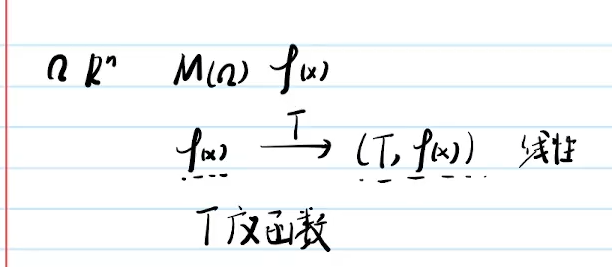 Ω Rⁿ M(Ω) f(x)
f(x) T→ (T, f(x)) 线性
T 广义函数